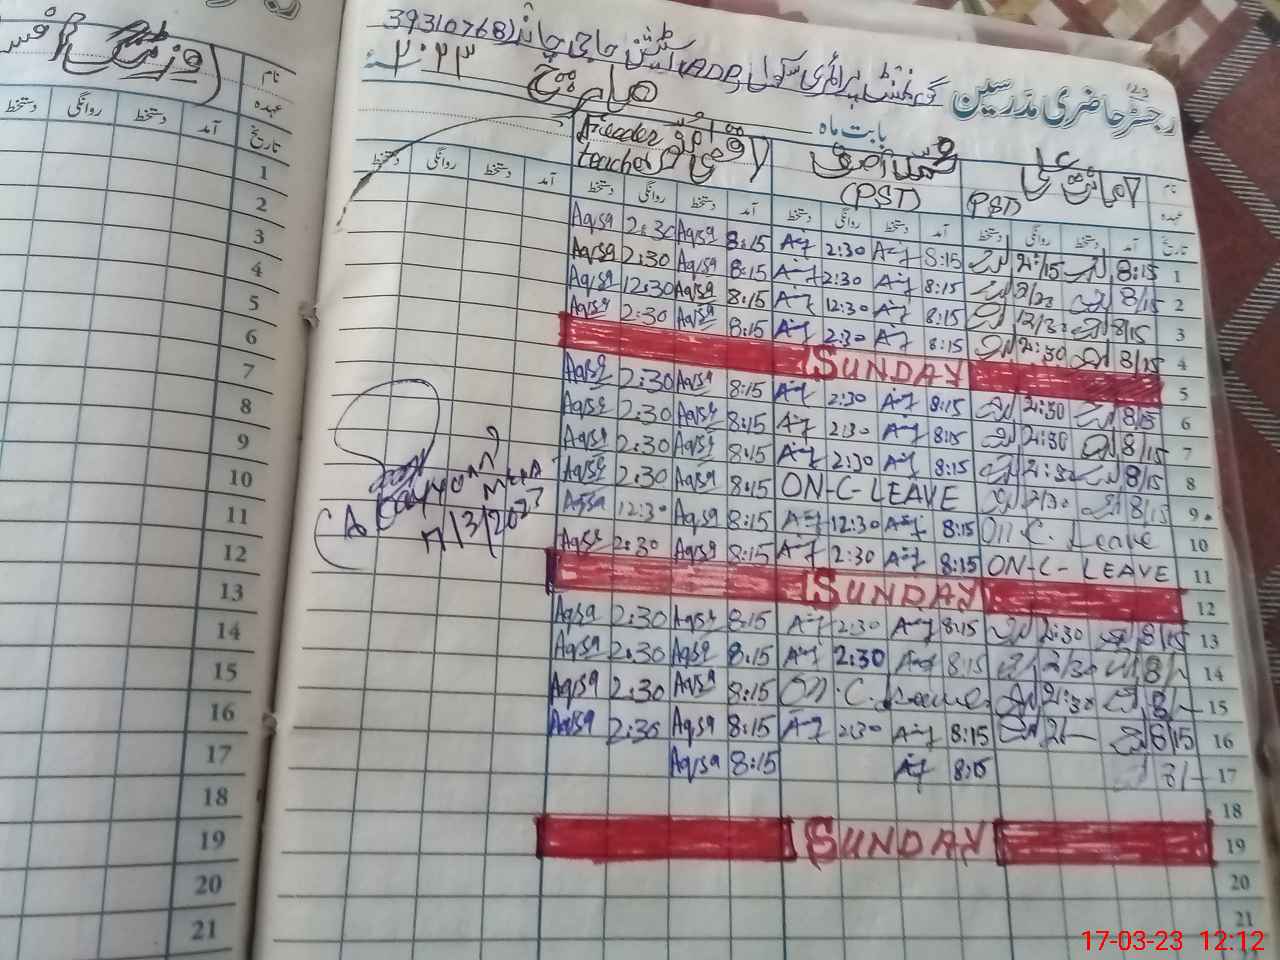 رجسٹر حاضری مدرسین
گورنمنٹ پرائمری سکول (ADP)
(39310768
بابت ماہ مارچ ۲۰۲۳ سنہ
نام امانت علی محمد آصف
عہدہ (PST) (PST) Feeder teacher
تاریخ آمد دستخط روانگی دستخط آمد دستخط روانگی دستخط آمد دستخط روانگی دستخط آمد دستخط روانگی دستخط
1 8:15 2:15 8:15 A-f 2:30 A-f 8:15 Aqsa 2:30 Aqsa
2 8/15 8:15 A-f 2:30 A-f 8:15 Aqsa 2:30 Aqsa
3 8/15 12/30 8:15 A-f 12:30 A-f 8:15 Aqsa 12:30 Aqsa
4 8/15 2:30 8:15 A-f 2:30 A-f 8:15 Aqsa 2:30 Aqsa
5 SUNDAY
6 8/15 2:30 8:15 A-f 2:30 A-f 8:15 Aqsa 2:30 Aqsa
7 8/15 2:30 8:15 A-f 2:30 A-f 8:15 Aqsa 2:30 Aqsa
8 8/15 2:30 8:15 A-f 2:30 A-f 8:15 Aqsa 2:30 Aqsa
9 8/15 2/30 ON-C-LEAVE 8:15 Aqsa 2:30 Aqsa
10 On C. Leave 8:15 A-f 12:30 A-f 8:15 Aqsa 12:30 Aqsa
11 ON-C-LEAVE 8:15 A-f 2:30 A-f 8:15 Aqsa 2:30 Aqsa
12 SUNDAY
13 8/15 2:30 8:15 A-f 2:30 A-f 8:15 Aqsa 2:30 Aqsa
14 8/- 2/30 8:15 A-f 2:30 A-f 8:15 Aqsa 2:30 Aqsa
15 8/- 2:30 On C. Leave 8:15 Aqsa 2:30 Aqsa
16 8/15 2/- 8:15 A-f 2:30 A-f 8:15 Aqsa 2:30 Aqsa
17 8/- 8:15 A-f 8:15 Aqsa
18
19 SUNDAY
20
21
MEA
17/3/2023
نام
عہدہ
تاریخ آمد دستخط روانگی دستخط
1
2
3
4
5
6
7
8
9
10
11
12
13
14
15
16
17
18
19
20
21
17-03-23 12:12